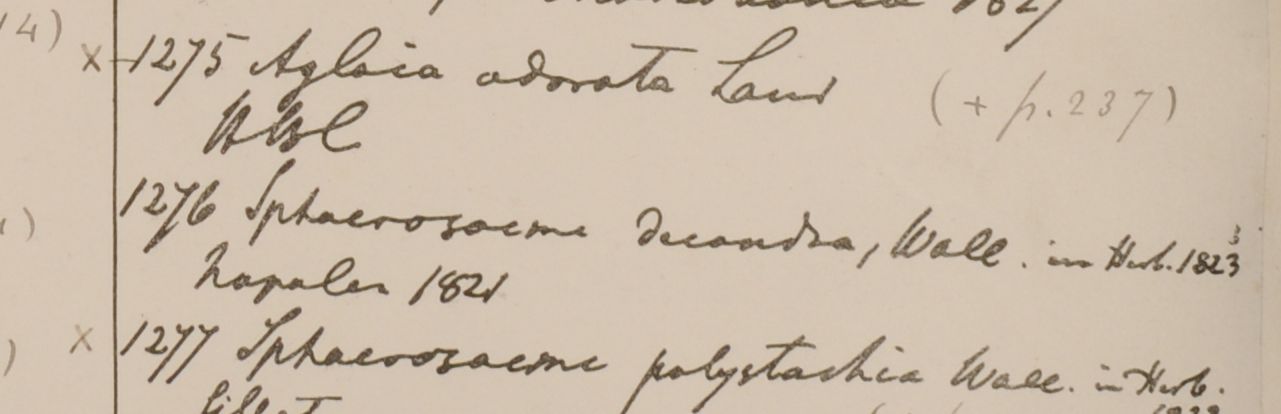 1827
14)
x 1275 Aglaia odorata Lour (+ p. 237)
HBC
1276 Sphaerosacme decandra, Wall. in Herb. 1823
Napalen 1821
)
x 1277 Sphaerosacme polystachia Wall. in Herb.
)